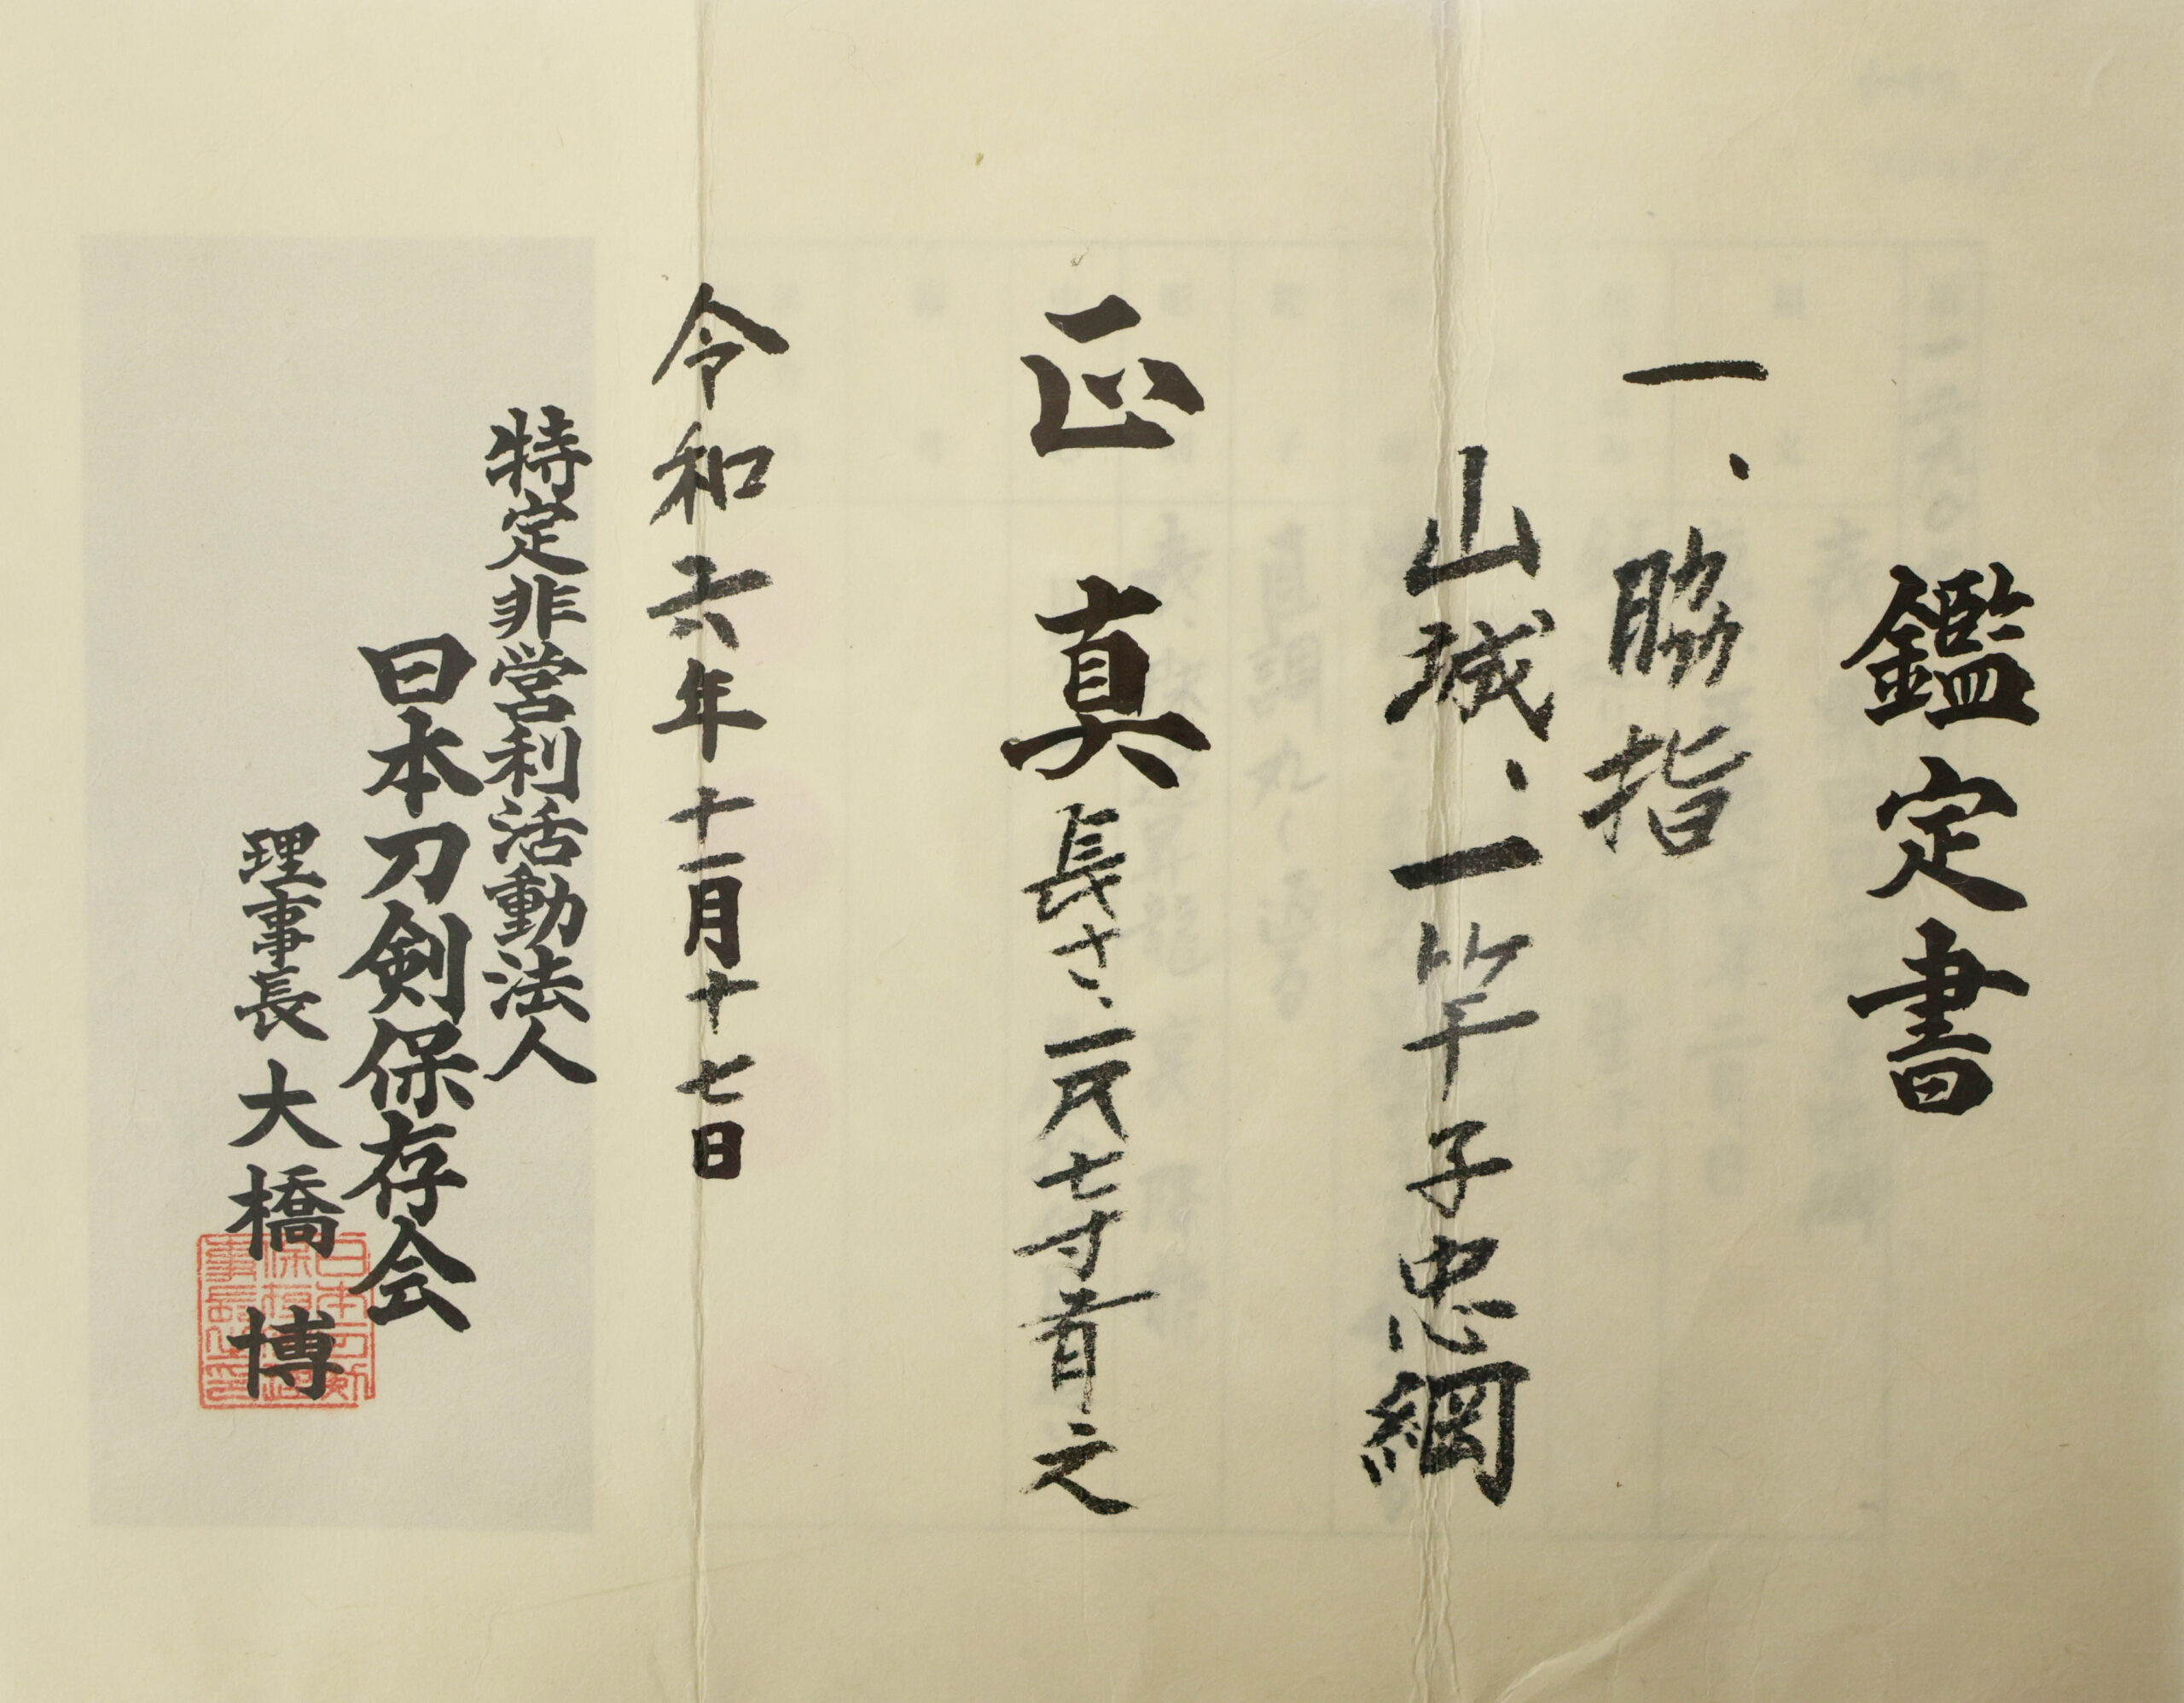 鑑定書
一、脇指
山城、一竿子忠綱
正真
長さ、一尺七寸有之
令和六年十一月十七日
特定非営利活動法人
日本刀剣保存会
理事長 大橋 博